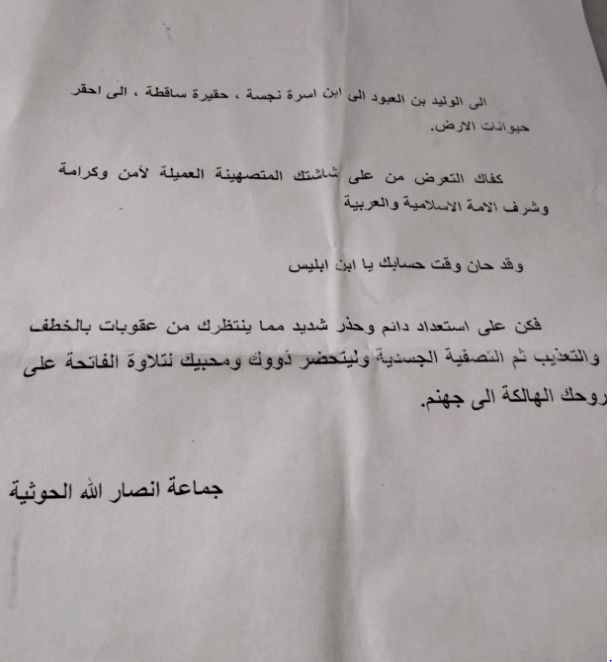 الى الوليد بن العبود الى ابن اسرة نجسة ، حقيرة ساقطة ، الى احقر
حيوانات الارض.
كفاك التعرض من على شاشتك المتصهينة العميلة لأمن وكرامة
وشرف الامة الاسلامية والعربية
وقد حان وقت حسابك يا ابن ابليس
فكن على استعداد دائم وحذر شديد مما ينتظرك من عقوبات بالخطف
والتعذيب ثم التصفية الجسدية وليتحضر ذووك ومحبيك لتلاوة الفاتحة على
روحك الهالكة الى جهنم.
جماعة انصار الله الحوثية